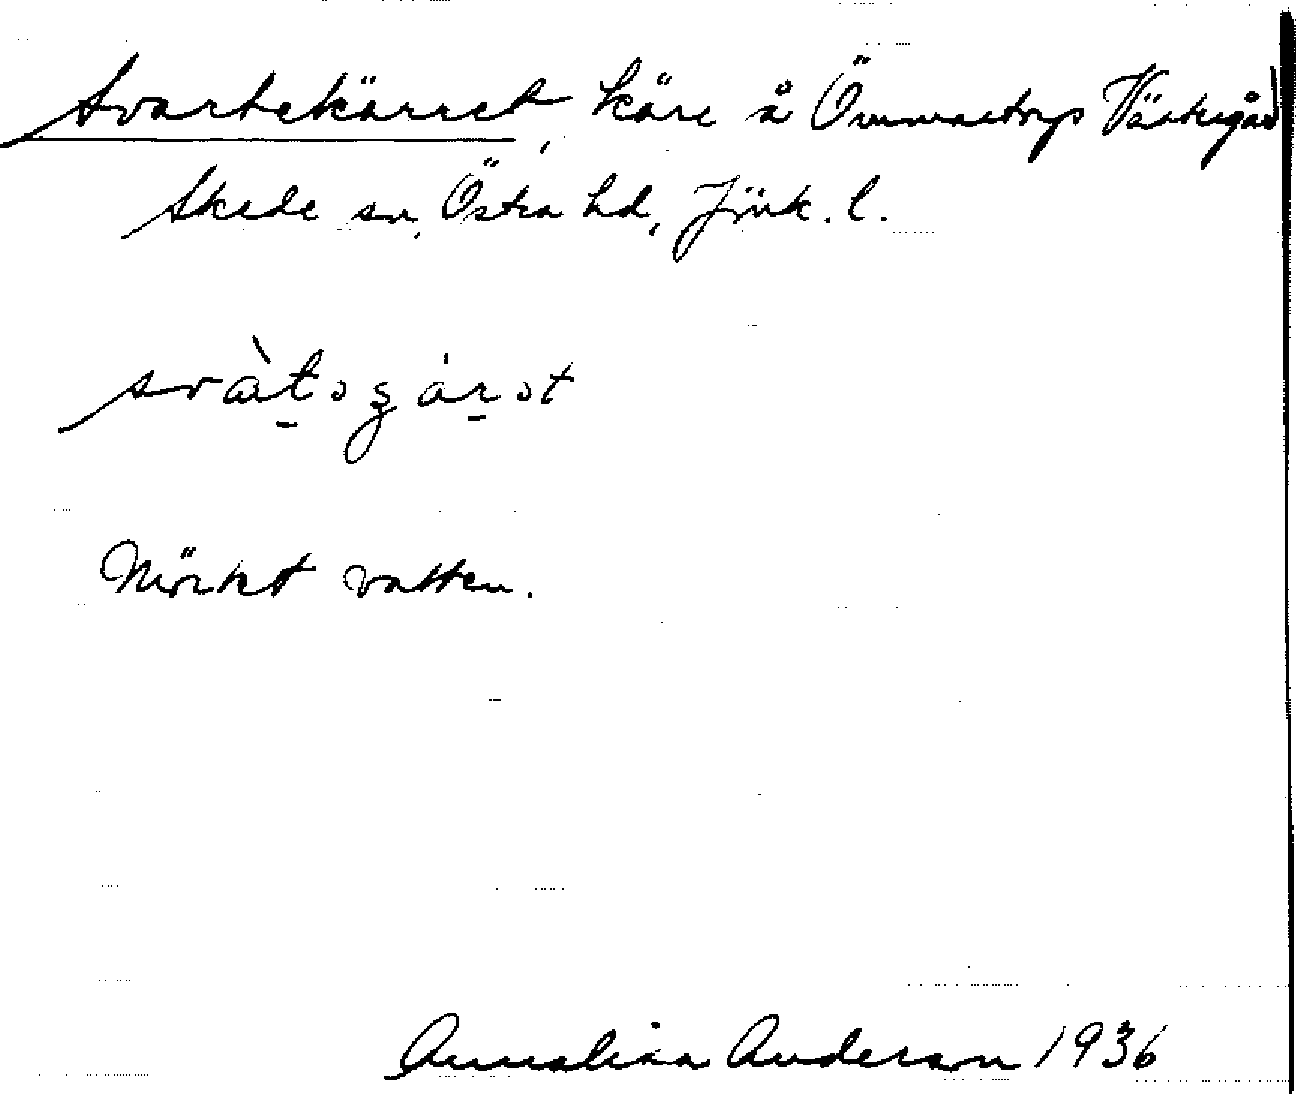 Svartekärret, kärr å Ömmaetorp Västrgård
Skede sn, Östra hd, Jönk. l.
svàtəʒárət
Mörkt vatten.
Annalisa Anderson 1936